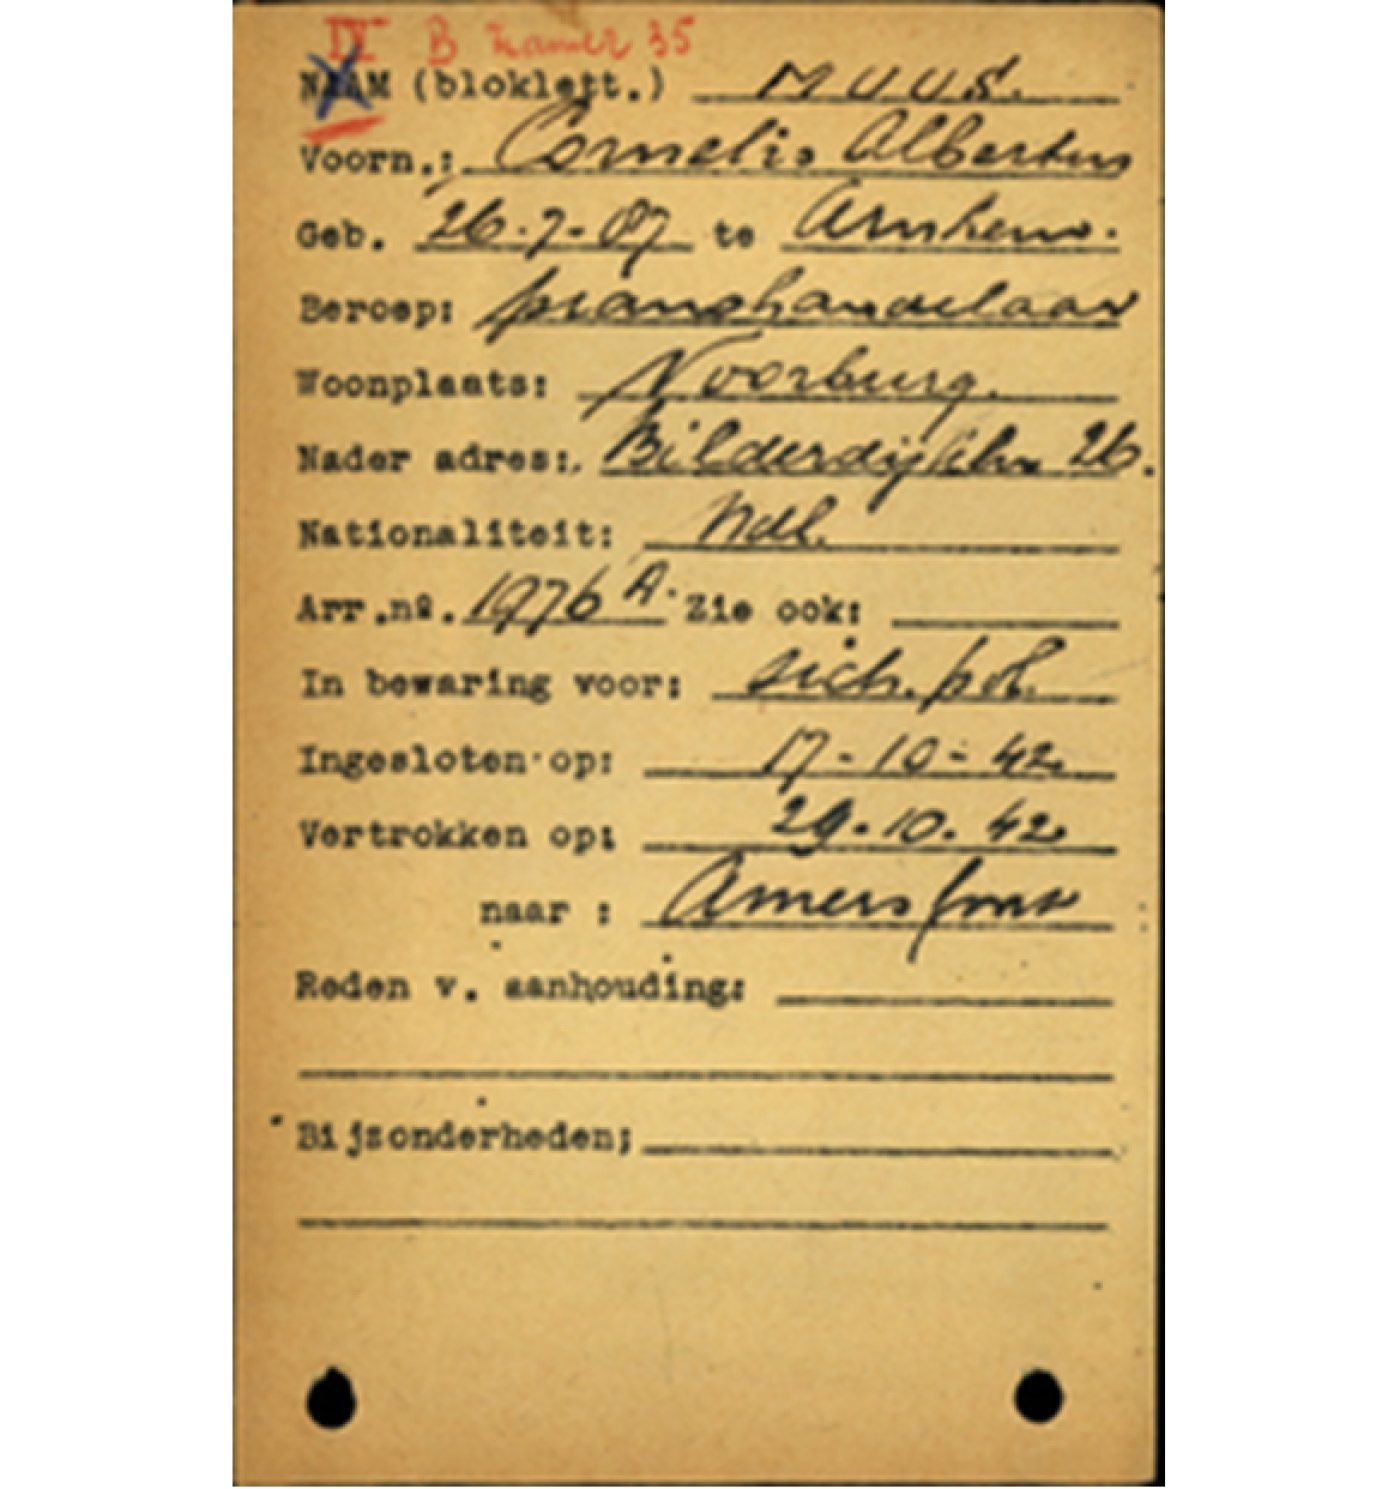 IV B Kamer 35
NAAM (bloklett.) MUUS.
Voorn.: Cornelis Albertus
Geb. 26-7-87 te Arnhem.
Beroep: pianohandelaar
Woonplaats: Voorburg.
Nader adres: Bilderdijkln 26.
Nationaliteit: Ndl.
Arr.nº. 1976 A. Zie ook:
In bewaring voor: sich. pol.
Ingesloten op: 17-10-42
Vertrokken op: 29.10.42
naar : Amersfoort
Reden v. aanhouding:
Bijzonderheden;